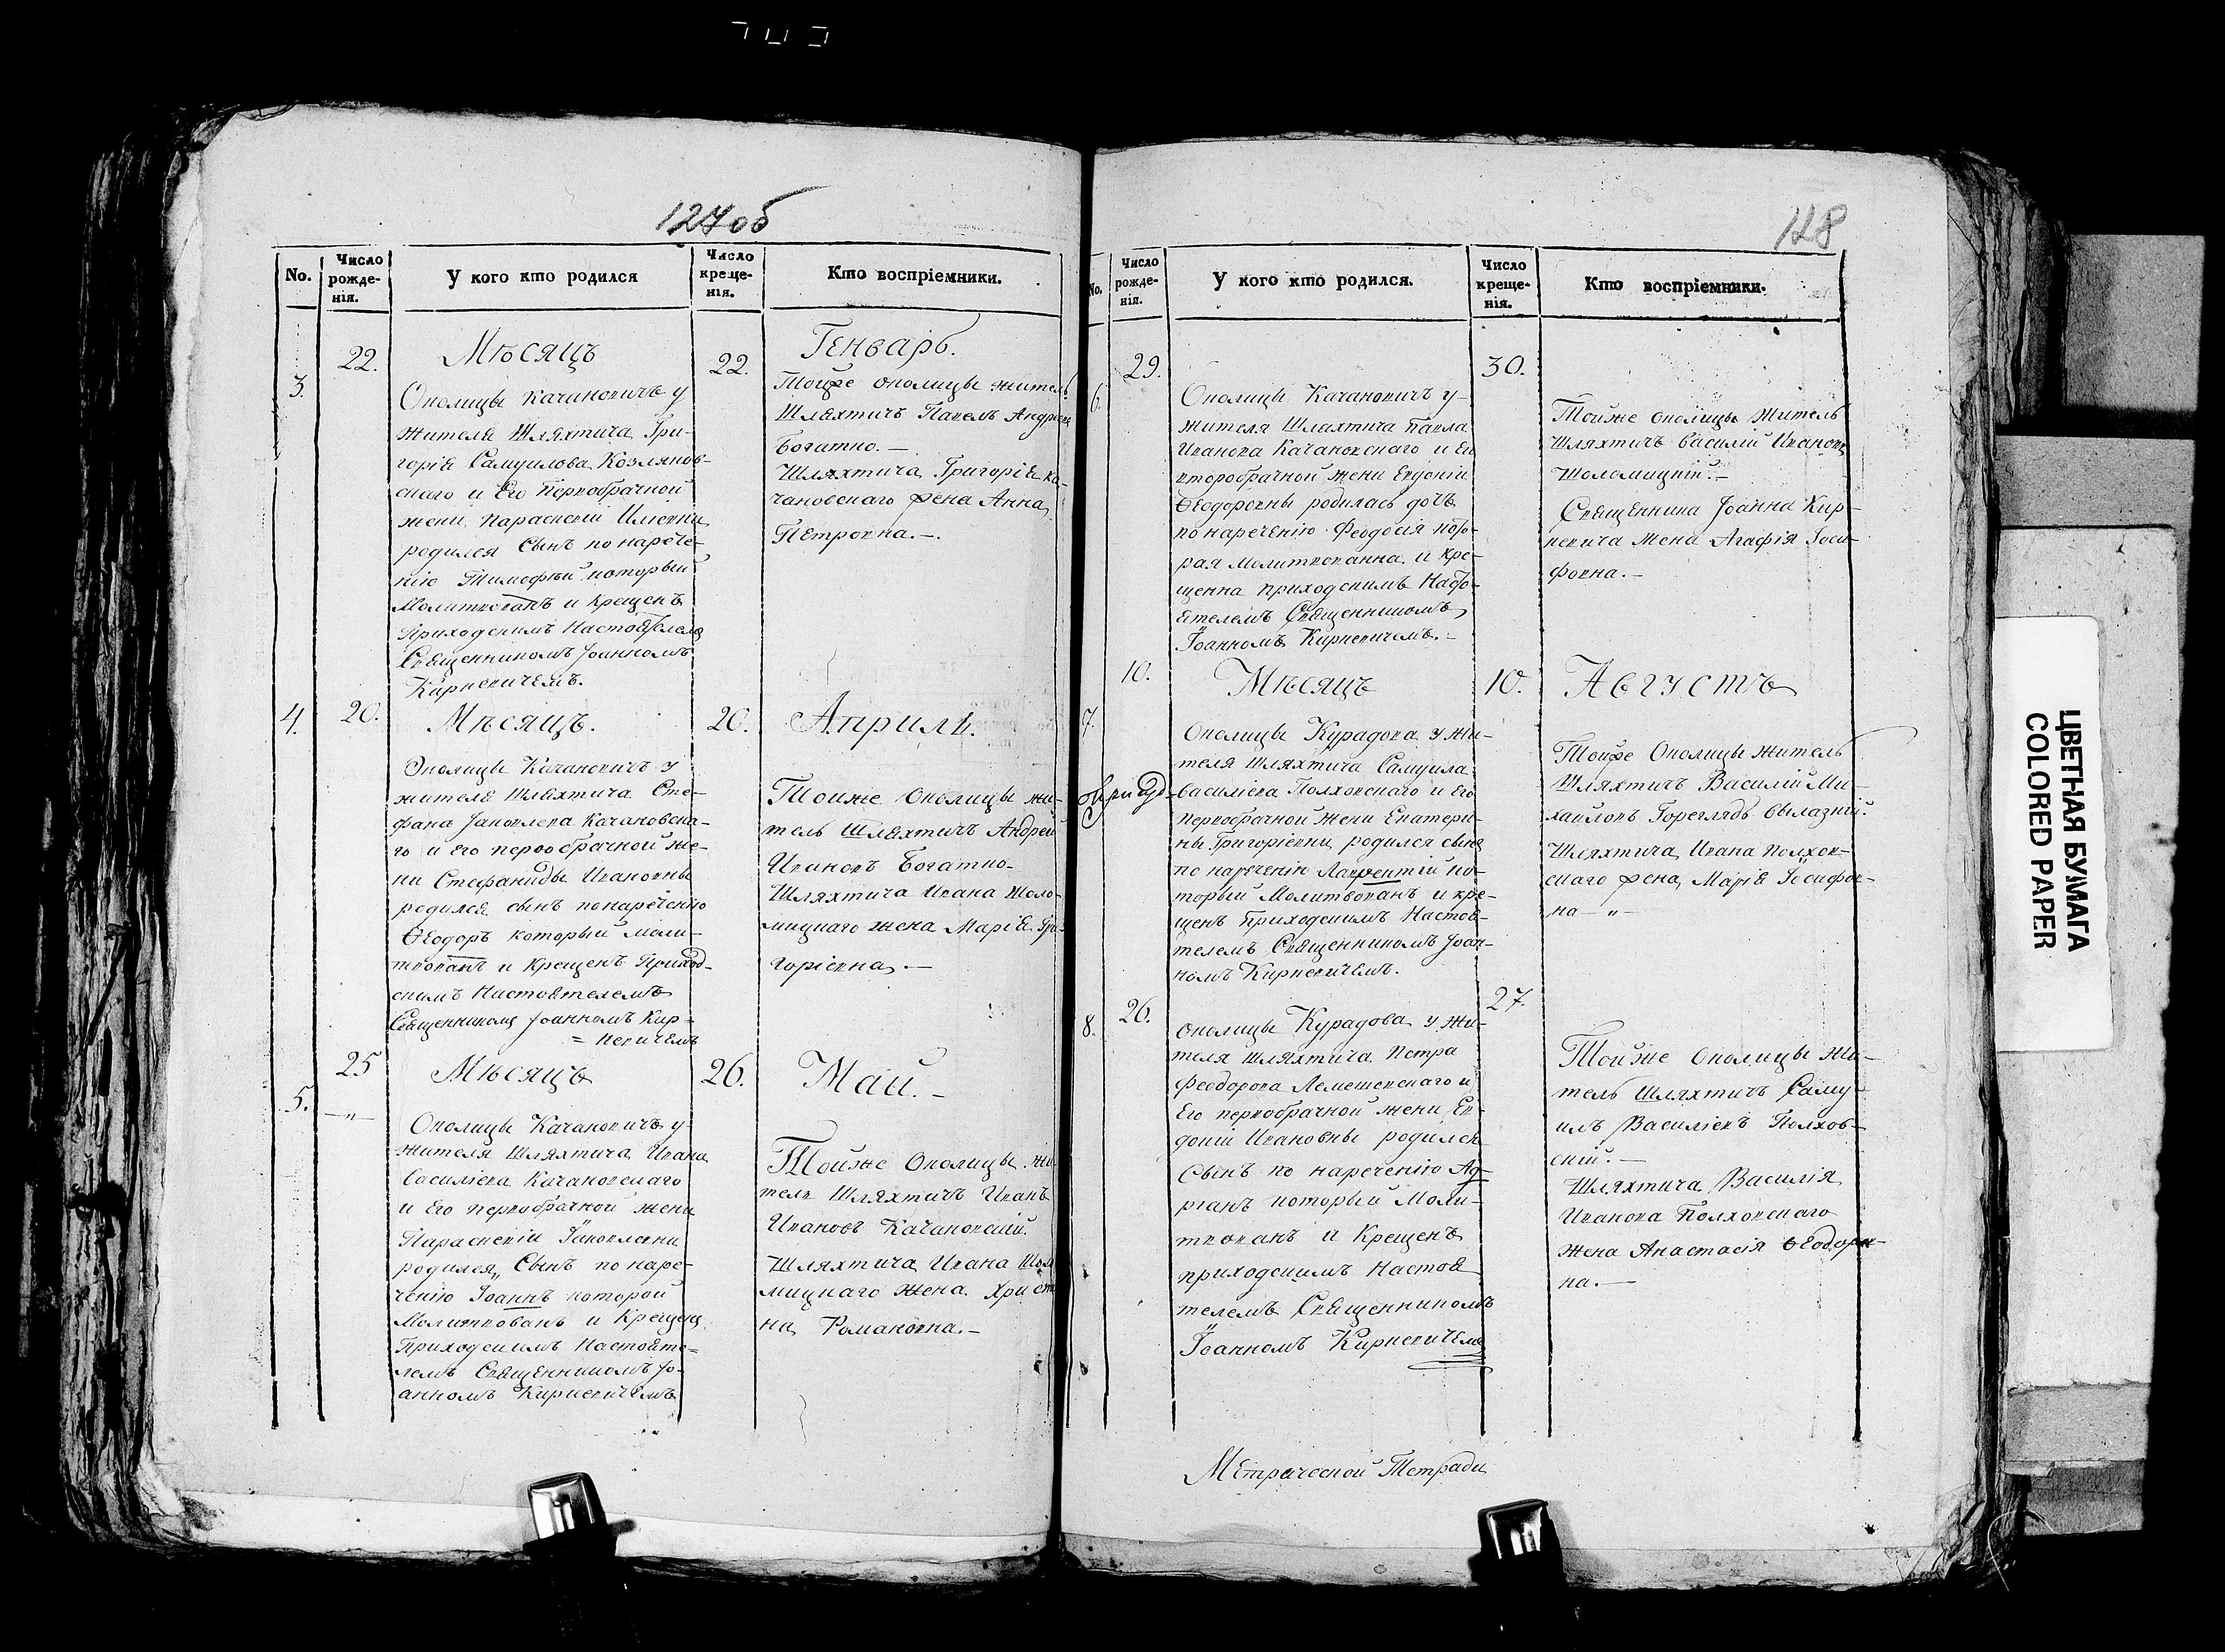 127об
No.
Число
рожде-
нія.
У кого кто родился
Число
креще-
нія.
Кто воспріемники.
3.
22.
Мѣсяцъ
22.
Генварь.
Околицы Качановичъ у
жителя Шляхтича Гри-
горія Самуилова Козлянов-
скаго и Его Первобрачной
жени Параскевіи
родился Сынъ по нарече-
нію Тимофѣй который
Молитвованъ и Крещенъ
Приходскимъ Настоятелемъ
Священникомъ Іоанномъ
Киркевичемъ.
Тойже околицы житель
Шляхтичъ Павелъ
Богатко.—
Шляхтича Григорія Ка-
чановскаго жена Анна
Петровна.—.
4.
20.
Мѣсяцъ.
20.
Апрѣль.
Околицы Качановичъ у
жителя Шляхтича Сте-
фана Яковлева Качановска-
го и его первобрачной же-
ни Стефаниды Ивановны
родился сынъ по нареченію
Ѳеодоръ который моли-
твованъ и Крещенъ Приход-
скимъ Настоятелемъ
Священникомъ Іоанномъ Кир-
= кевичемъ
Тойже Околицы жи-
тель Шляхтичъ Андрей
Ивановъ Богатко-
Шляхтича Ивана Шоло-
мицкаго жена Марія Гри-
горіевна.—
5.
25
—„—
Мѣсяцъ
26.
Май.—
Околицы Качановичъ у
жителя Шляхтича Ивана
Василіева Качановскаго
и Его первобрачной жени
Параскевіи Яковлевни
родился„ Сынъ по наре-
ченію Іоаннъ которой
Молитвованъ и Крещенъ
Приходскимъ Настояте=
лемъ Священникомъ Іо-
анномъ Киркевичемъ
Тойже Околицы жи-
тель Шляхтичъ Иванъ
Ивановъ Качановскій.
Шляхтича Ивана Шоло
мицкаго жена Христи
на Романовна.—
128
No.
Число
рожде-
нія.
У кого кто родился.
Число
креще-
нія.
Кто воспріемники.
6.
29.
30.
Околицы Качановичъ у-
жителя Шляхтича Павла
Иванова Качановскаго и Его
второбрачной жени Евдокіи
Ѳеодоровны родилась дочь
по нареченію Феодосія кото-
рая Молитвованна и кре-
щенна приходскимъ Насто-
ятелемъ Священникомъ
Іоанномъ Киркевичемъ.—
Тойже Околицы Житель
Шляхтичъ Василій Ивановъ
Шоломицкій.—
Священника Іоанна Кир-
кевича Жена Агафія Іоси-
фовна.—
7.
10.
Мѣсяцъ
10.
Августъ
Околицы Курадова у жи-
теля Шляхтича Самуила
Василіева Полховскаго и Его
первобрачной жени Екатери-
ны Григоріевни родился сынъ
по нареченію Лаврентій ко-
торый Молитвованъ и кре-
щенъ Приходскимъ Настоя-
телемъ Священникомъ Іоан-
номъ Киркевичемъ.
Тойже Околицы житель
Шляхтичъ Василій Ми-
хайловъ Гореглядъ
Шляхтича Ивана Полхов-
скаго жена Марія Іосифов-
на—„—
8.
26.
27.
Околицы Курадова у жи-
теля Шляхтича Петра
Феодорова Лемешевскаго и
Его первобрачной жени Ев-
докіи Ивановны родился
Сынъ по нареченію Ад-
ріанъ который Моли-
твованъ и Крещенъ
приходскимъ Настоя
телемъ Священникомъ
Іоанномъ Киркевичемъ
Тойже Околицы жи-
тель Шляхтичъ Саму-
илъ Василіевъ Полхов-
скій.—
Шляхтича Василія
Иванова Полховскаго
жена Анастасія Ѳеодоров-
на.—
Метрической Тетради
ЦВЕТНАЯ БУМАГА
COLORED PAPER